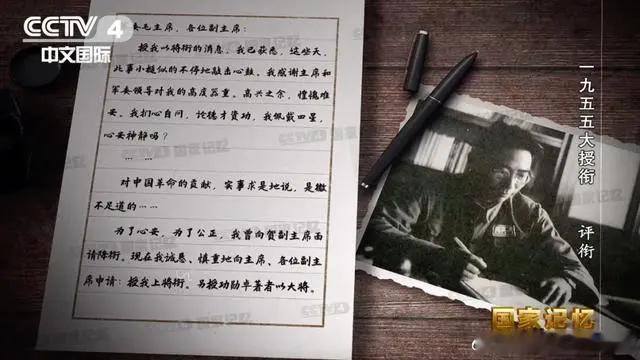 CCTV 4
中文国际
毛主席,各位副主席:
授我以将衔的消息,我已获悉,这些天,
此事小槌似的不停地敲击心鼓。我感谢主席和
军委领导对我的高度器重。高兴之余,惶愧难
安。我扪心自问,论德才资功,我佩戴四星,
心安神静吗?
… …
对中国革命的贡献,实事求是地说,是微
不足道的……
为了心安,为了公正,我曾向贺副主席面
请降衔。现在我诚恳、慎重地向主席、各位副主
席申请:授我上将衔。另授功勋卓著者以大将。
一九五五大授衔
评衔
国家记忆